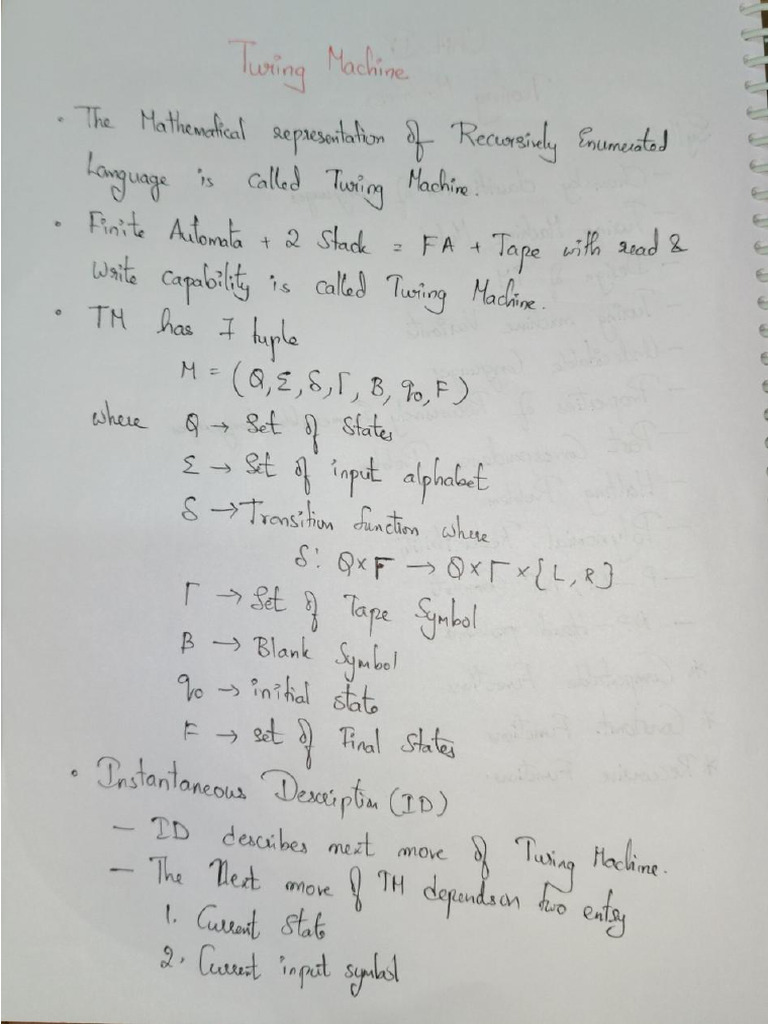 Turing Machine
• The Mathematical representation of Recursively Enumerated
Language is called Turing Machine.
• Finite Automata + 2 Stack = FA + Tape with read &
Write capability is called Turing Machine.
• TM has 7 tuple
M = (Q, Σ, δ, Γ, B, q0, F)
where Q → Set of States
Σ → Set of input alphabet
δ → Transition function where
δ: Q × F → Q × Γ × {L, R}
Γ → Set of Tape Symbol
B → Blank Symbol
q0 → initial state
F → set of Final States
• Instantaneous Description (ID)
— ID describes next move of Turing Machine.
— The Next move of TM depends on two entry
1. Current State
2. Current input symbol